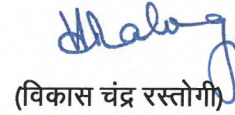 (विकास चंद्र रस्तोगी)